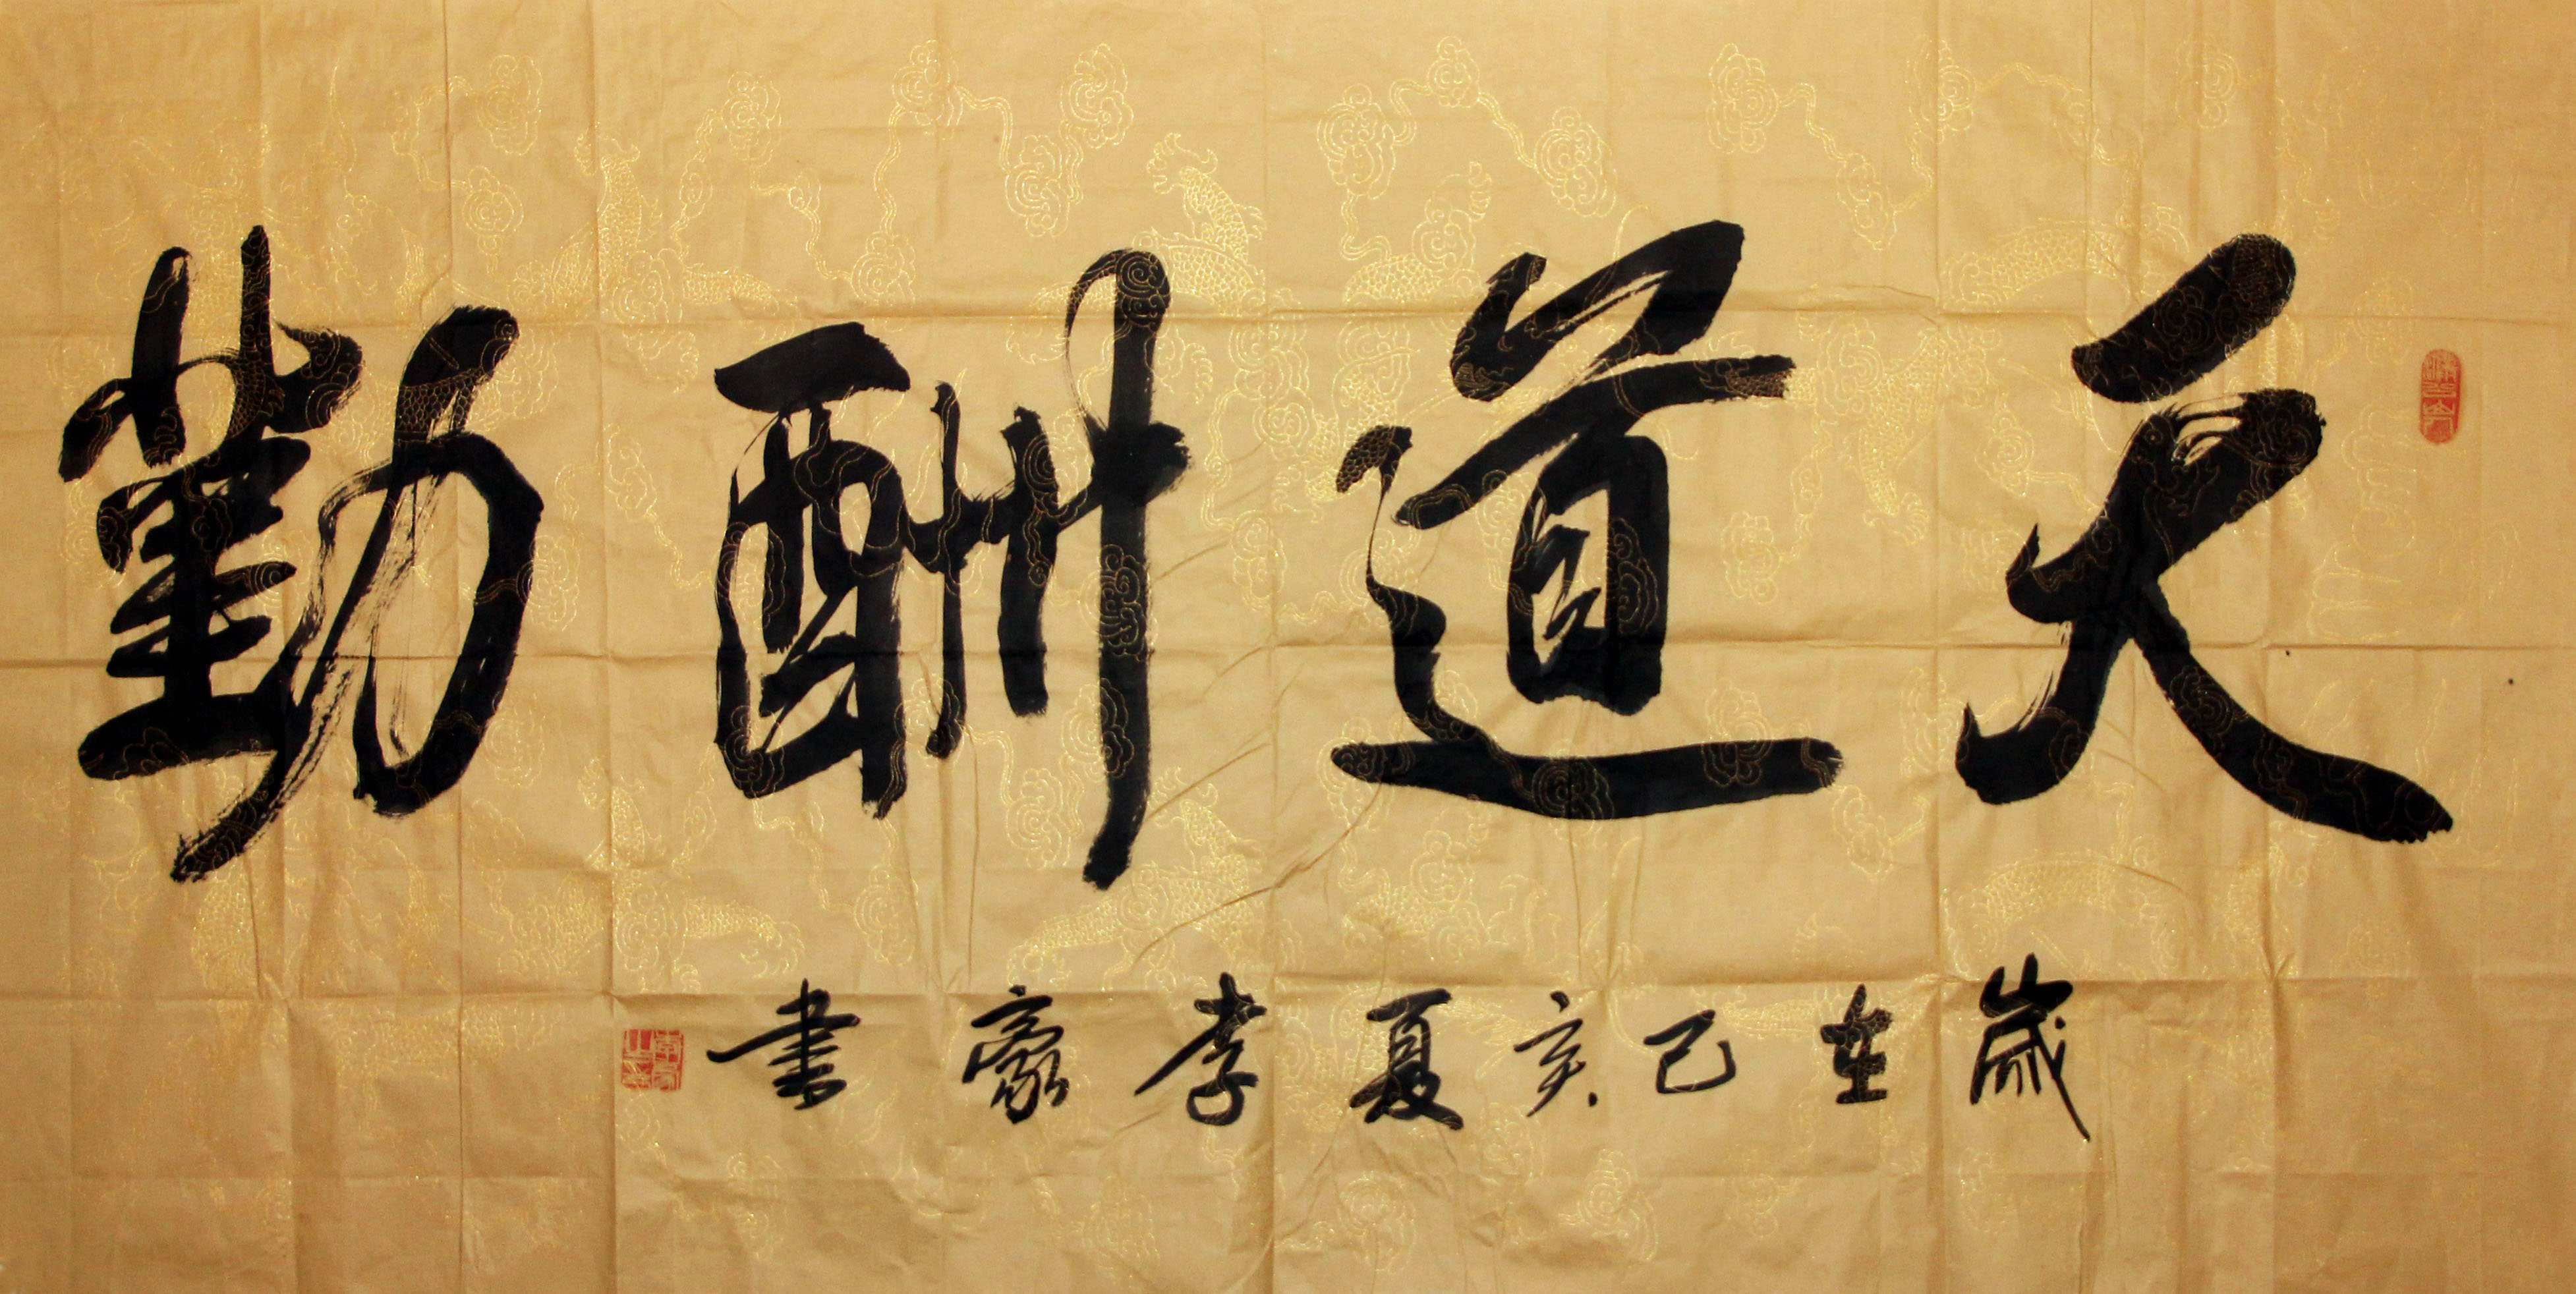 天道酬勤
歲在己亥夏孝豪書